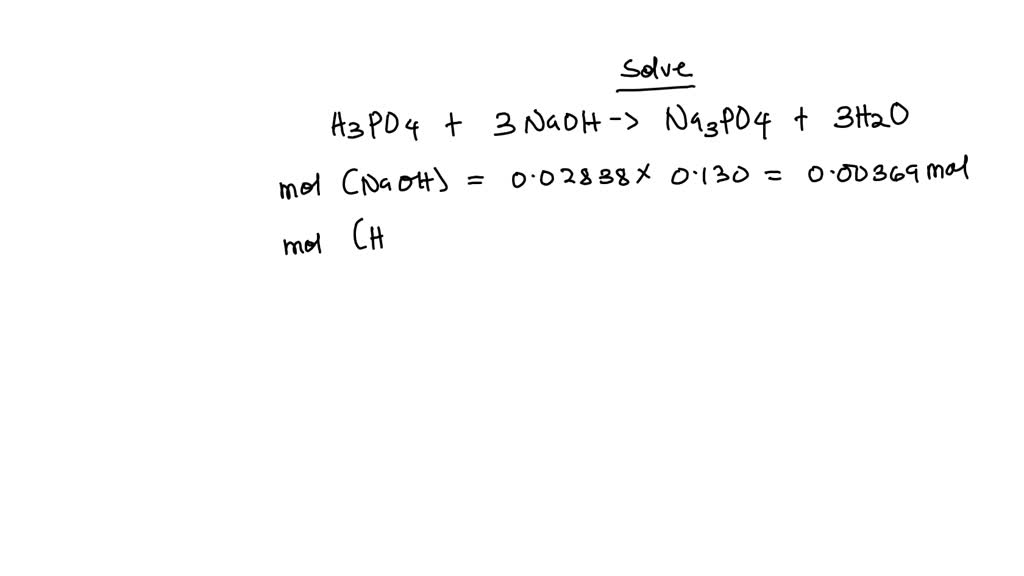 Solve
H3PO4 + 3NaOH -> Na3PO4 + 3H2O
mol (NaOH) = 0.02838 x 0.130 = 0.00369 mol
mol (H